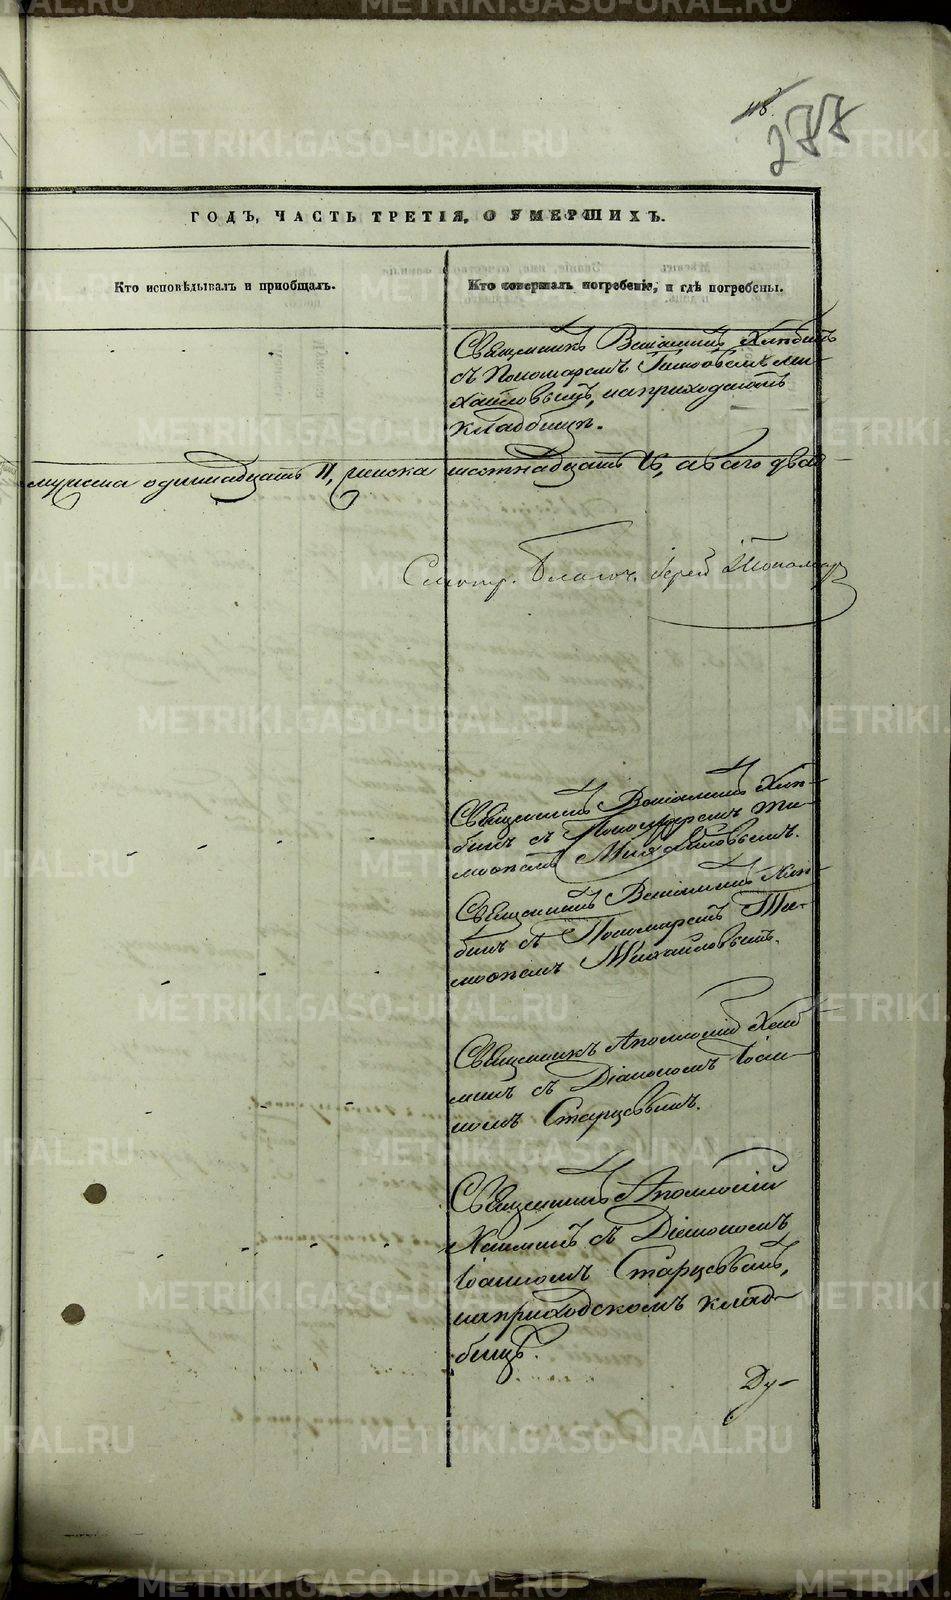 118.
277
ГОДЪ, ЧАСТЬ ТРЕТІЯ, О УМЕРШИХЪ.
Кто исповѣдывалъ и приобщалъ.
Кто совершалъ погребеніе, и гдѣ погребены.
Священникъ Веніаминъ Хлѣбинъ
съ Пономаремъ Тимоѳеемъ Ми-
хайловымъ, наприходскомъ
кладбищѣ.
мужска одинадцать 11, женска шестнадцать 16, а всего два
Смотр. Благоч. Іерей Пономар
Священникъ Веніаминъ Хлѣ-
бинъ съ Пономаремъ Ти-
моѳеемъ Михайловымъ.
Священникъ Веніаминъ Хлѣ-
бинъ съ Пономаремъ Ти-
моѳеемъ Михайловымъ.
Священникъ
съ Діакономъ Іоан-
номъ Старцовымъ.
Священникъ
съ Діакономъ
Іоанномъ Старцовымъ,
наприходскомъ клад-
бищѣ.
Ду-
METRIKI.GASO-URAL.RU